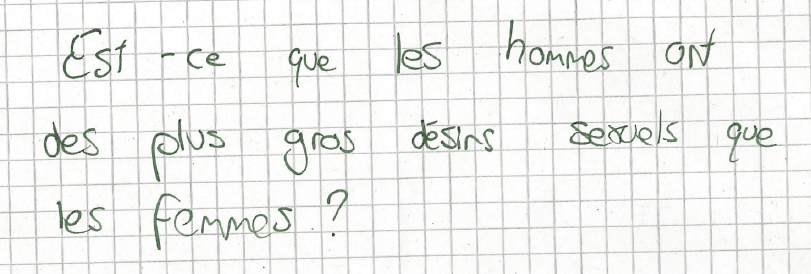 Est-ce que les hommes ont
des plus gros désirs sexuels que
les femmes ?